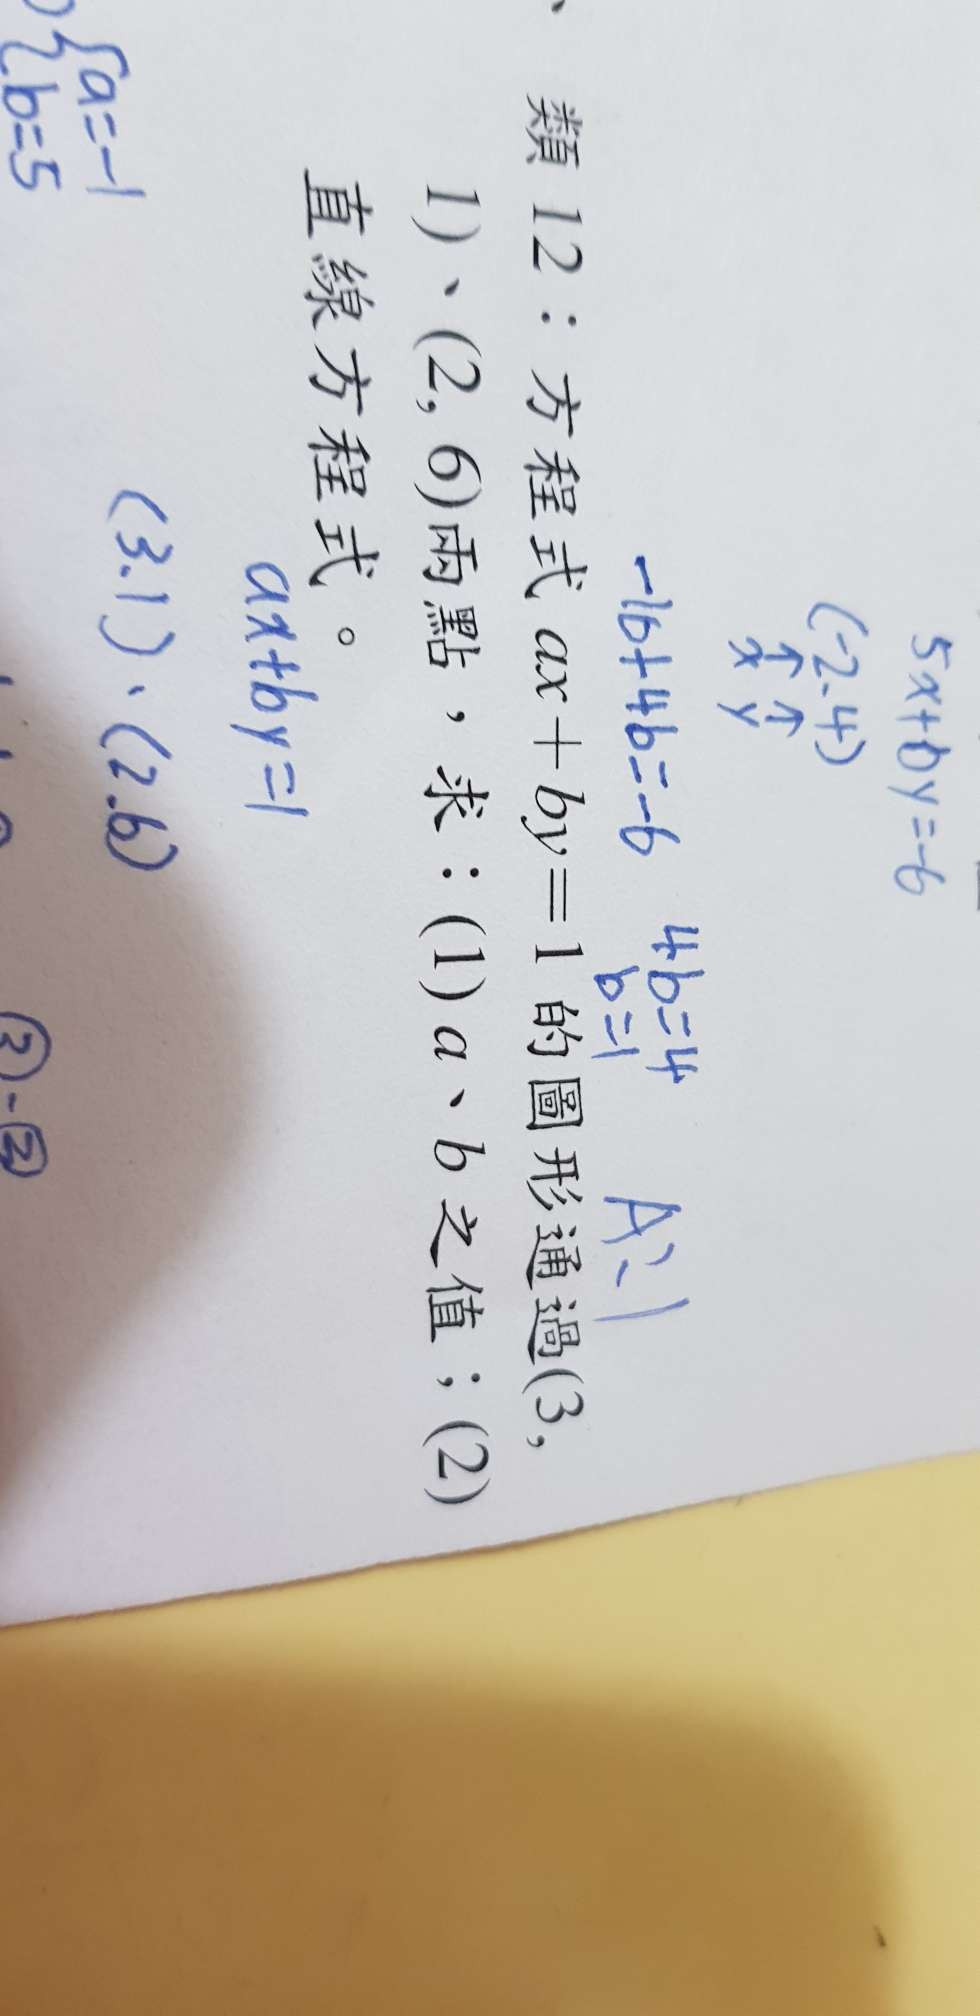 5x+by=-6
(-2.4)
↑ ↑
x y
-10+4b=-6 4b=4
b=1
A:1
、類 12：方程式 ax＋by＝1 的圖形通過(3,
1)、(2, 6)兩點，求：(1) a、b 之值；(2)
直線方程式。
ax+by=1
(3.1)、(2.6)
{a=-1
b=5
③-②